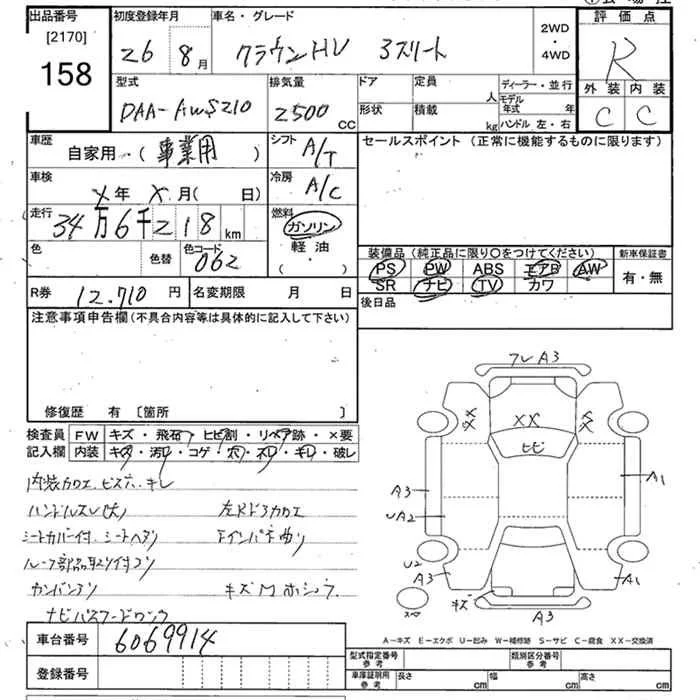 出品番号 初度登録年月 車名・グレード 評価点
[2170]
158
26 8月 クラウンHV 3スリート 2WD・4WD R
型式 排気量 ドア 定員 人 ディーラー・並行 外装 内装
DAA-AWS210 2500 CC 形状 積載 kg モデル年式 年 ハンドル 左・右 C C
車歴 自家用・(事業用) シフト A/T セールスポイント (正常に機能するものに限ります)
車検 X年 X月(日) 冷房 A/C
走行 34万6千218km 燃料 ガソリン・軽油・( )
色 色替 色コード 062
装備品(純正品に限り〇をつけてください) 新車保証書
PS PW ABS エアB AW 有・無
SR ナビ TV カワ
R券 12,710円 名変期限 月 日 後日品
注意事項申告欄(不具合内容等は具体的に記入して下さい)
修復歴 有 [箇所 ]
検査員記入欄 FW キズ・飛石・ヒビ割・リペア跡・×要
内装 キズ・汚レ・コゲ・穴・スレ・キレ・破レ
内装カロエ、ビス穴、キレ
ハンドルスレ(大) 左Rドアカロエ
シートカバー付、シートヘタリ
ルーフ部品取り付
キズ
ナビパスワードロック
フレA3
XX XX XX
ヒビ
A3 A1
UA2
U2
A3 A1
キズ
A3
A-キズ E-エクボ U-凹み W-補修跡 S-サビ C-腐食 XX-交換済
車台番号 6069914
型式指定番号 参考 類別区分番号 参考
登録番号 車庫証明用 参考 長さ cm 幅 cm 高さ cm